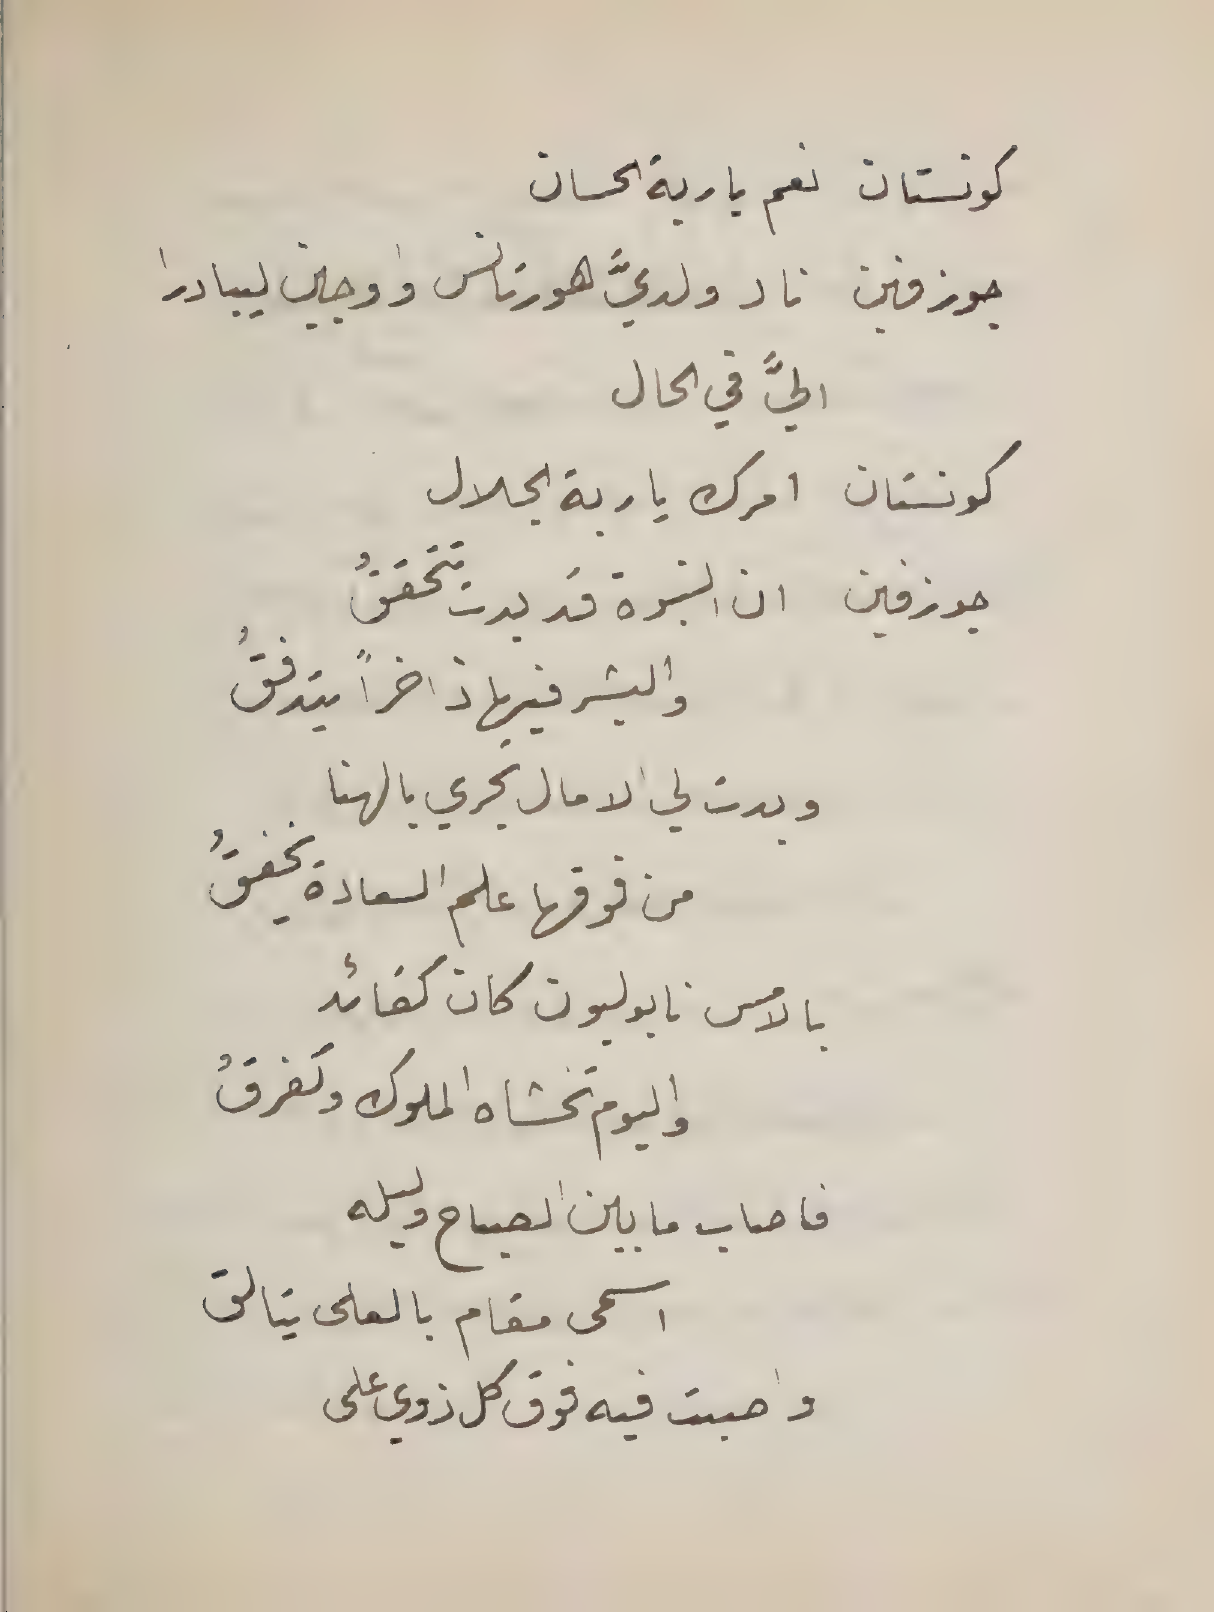 كونستان نعم يا ربة الحسان
جوزفين ناد ولديَّ هورتانس واوجين ليبادرا
اليَّ في الحال
كونستان امرك يا ربة الجلال
جوزفين ان النبوة قد بدت تتحققُ
والبشر فيها ذاخراً يتدفقُ
وبدت لي الامال تجري بالهنا
من فوقها علم السعادة يخفقُ
بالامس نابوليون كان كقائد
واليوم تخشاه الملوك وتفرقُ
فاصاب ما بين الصباح وليله
اسمى مقام بالعلى يتالق
واصبت فيه فوق كل ذوي على